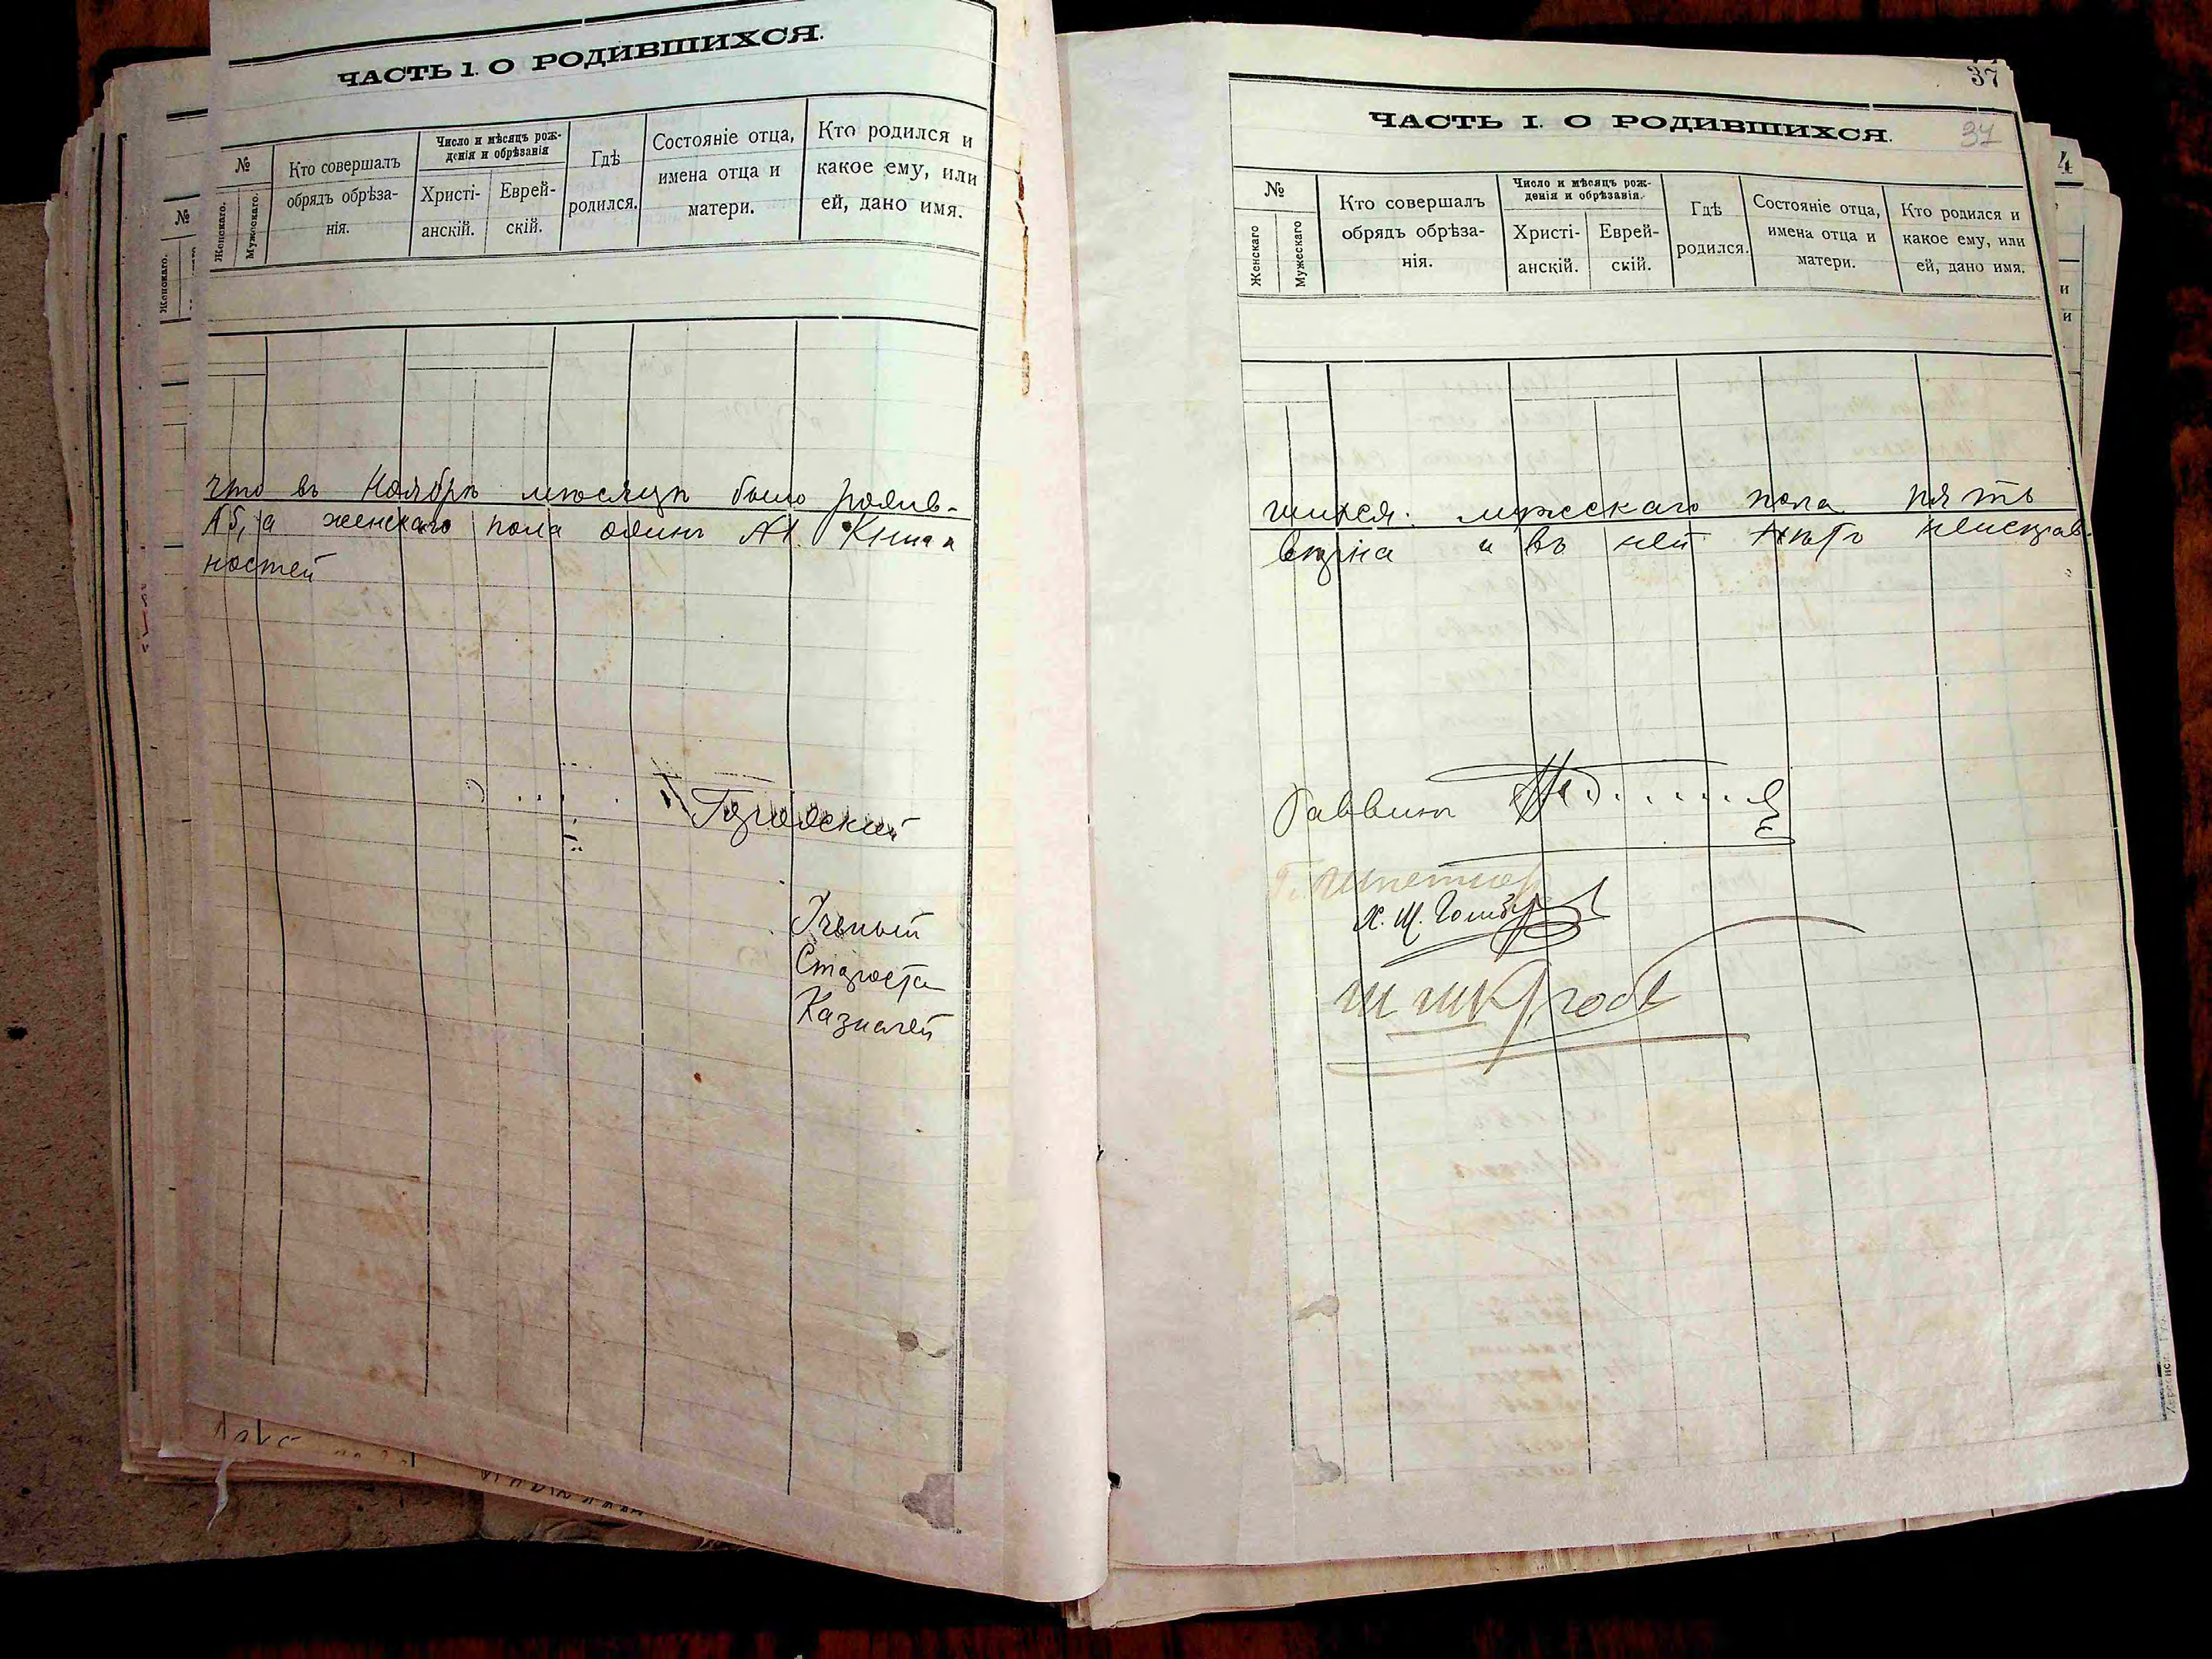 ЧАСТЬ 1. О РОДИВШИХСЯ.
№
Женскаго.
Мужескаго.
Кто совершалъ
обрядъ обрѣза-
нія.
Число и мѣсяцъ рож-
денія и обрѣзанія
Христі-
анскій.
Еврей-
скій.
Гдѣ
родился.
Состояніе отца,
имена отца и
матери.
Кто родился и
какое ему, или
ей, дано имя.
что въ Ноябрѣ мѣсяцѣ было родив-
№5, а женскаго пола одинъ №1. Книга
ностей
Ученый
Староста
Казначей
№
Женскаго.
37
ЧАСТЬ I. О РОДИВШИХСЯ.
37
№
Женскаго
Мужескаго
Кто совершалъ
обрядъ обрѣза-
нія.
Число и мѣсяцъ рож-
денія и обрѣзанія.
Христі-
анскій.
Еврей-
скій.
Гдѣ
родился.
Состояніе отца,
имена отца и
матери.
Кто родился и
какое ему, или
ей, дано имя.
шихся: мужскаго пола пять
вѣрна и въ ней нѣтъ неисправ-
Раввинъ
Х. Ш.
4